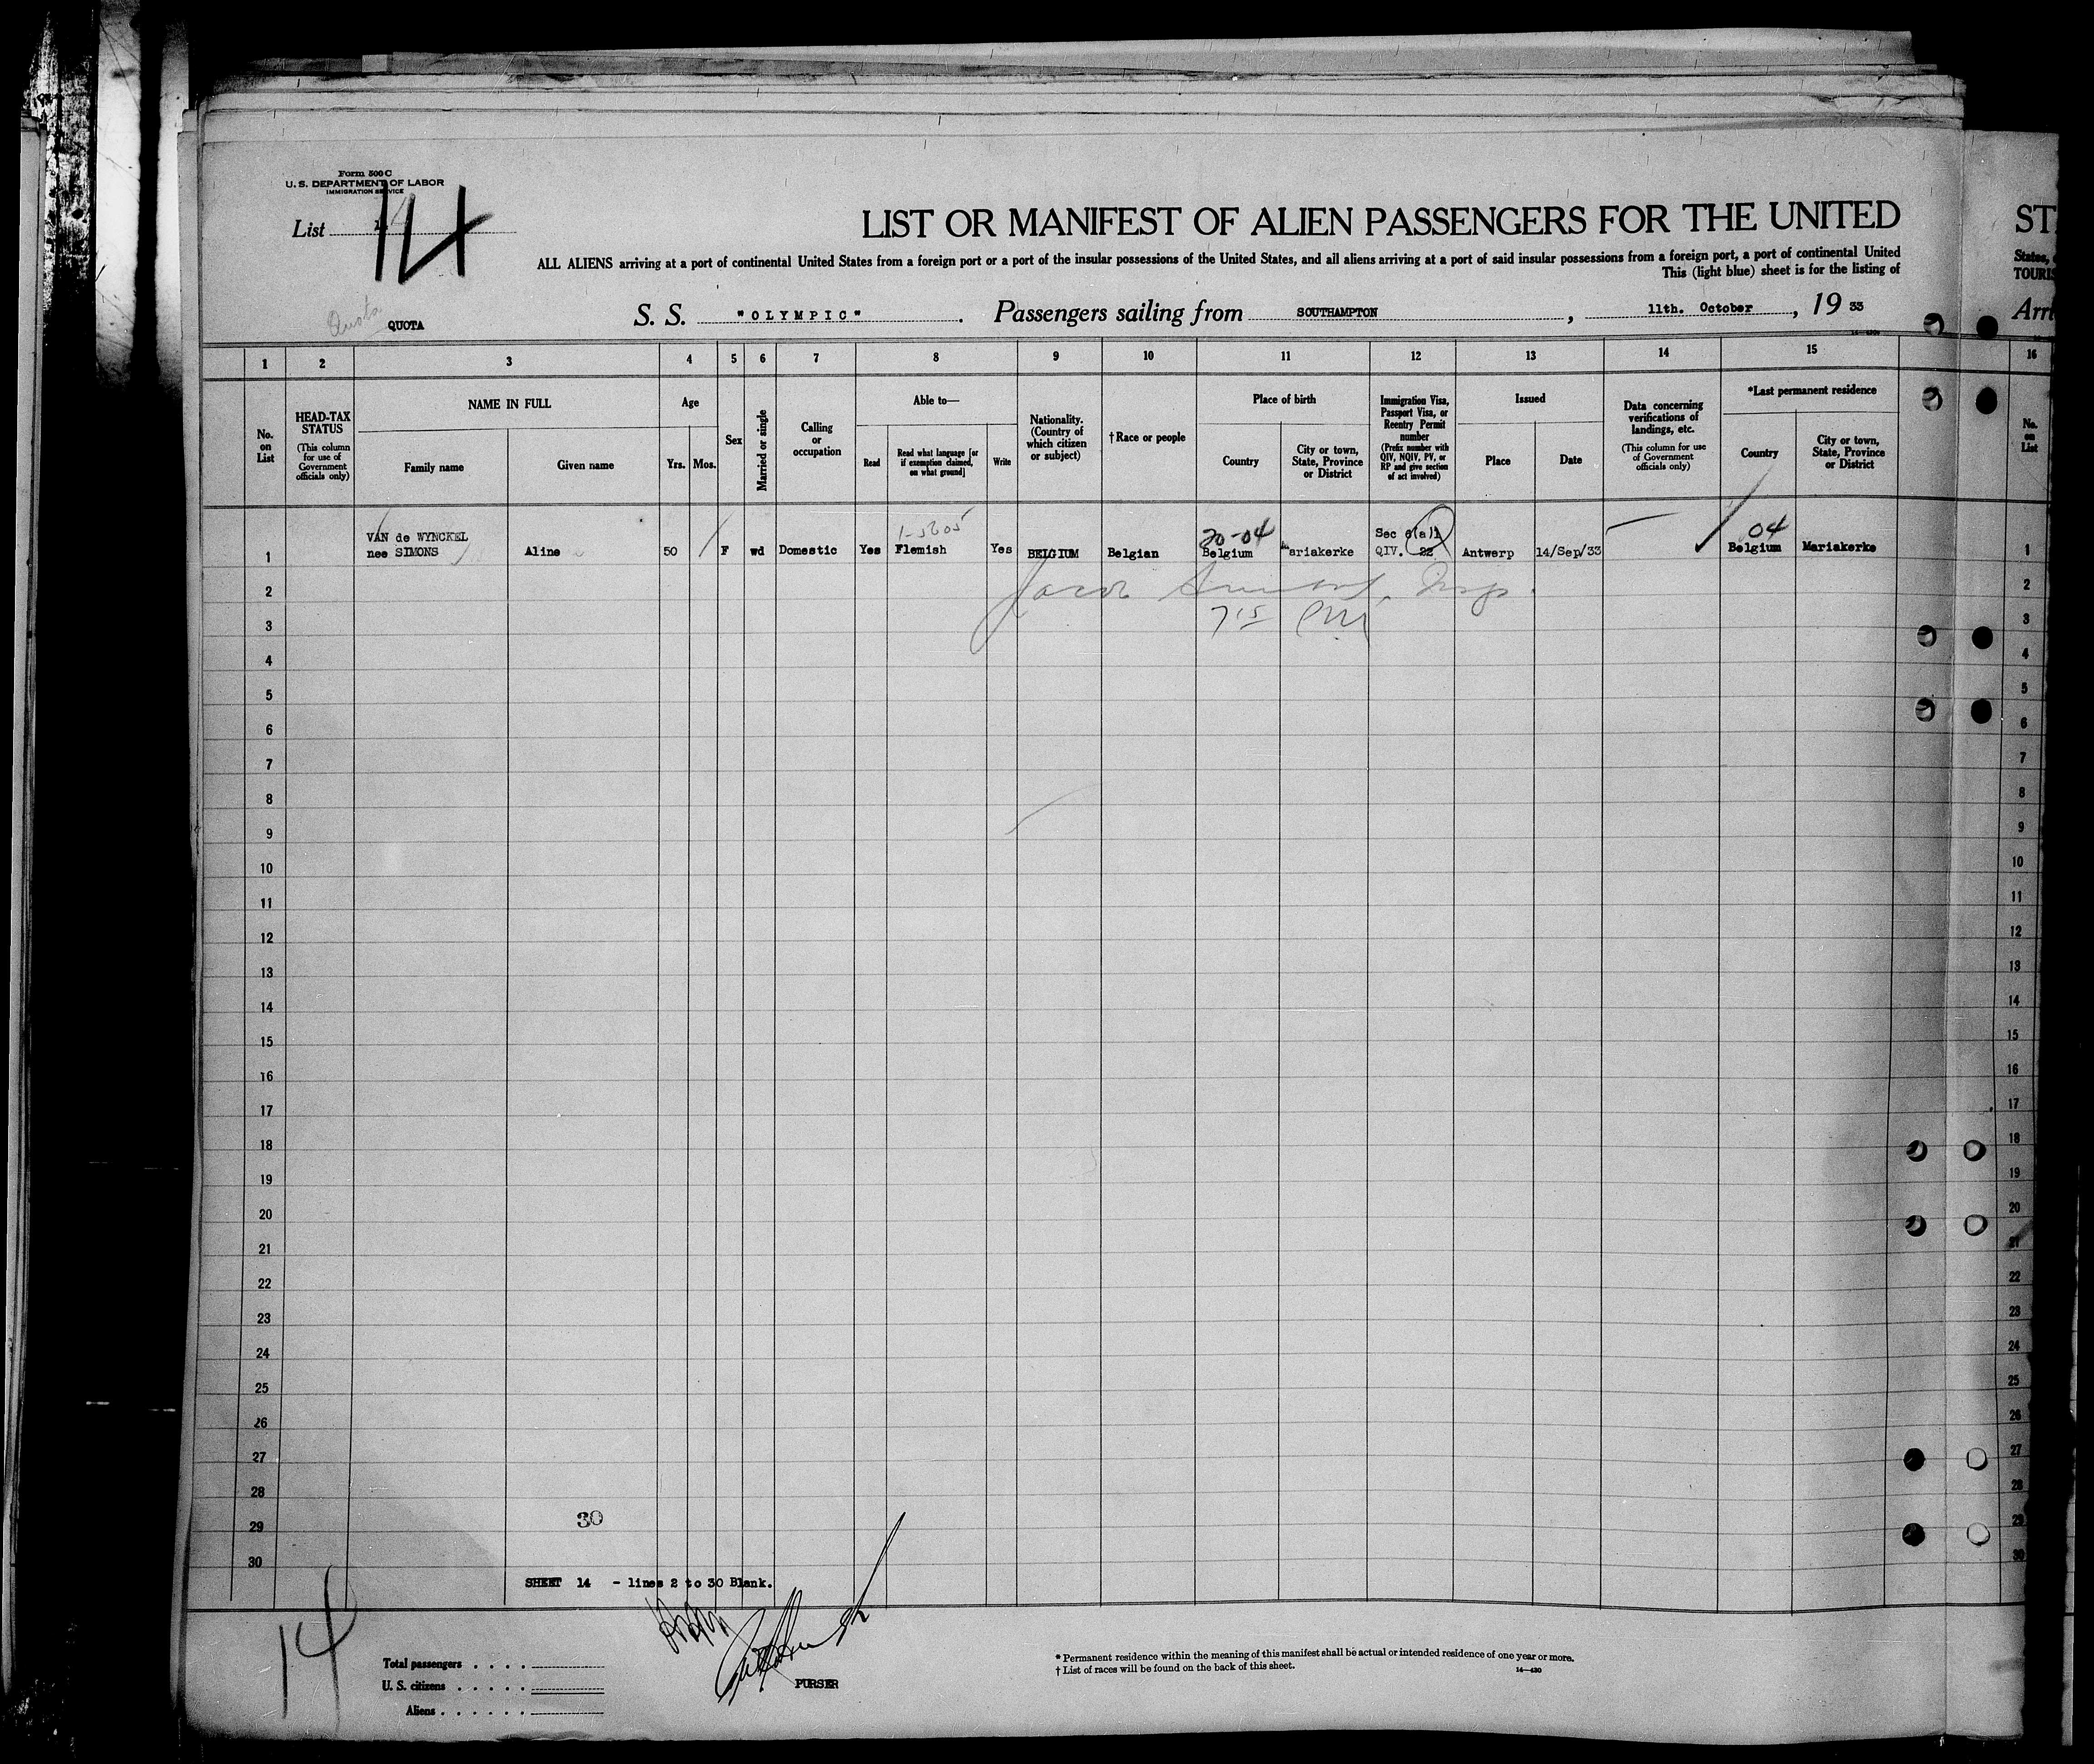 Form 500 C
U. S. DEPARTMENT OF LABOR
IMMIGRATION SERVICE
List 14
LIST OR MANIFEST OF ALIEN PASSENGERS FOR THE UNITED
ST
ALL ALIENS arriving at a port of continental United States from a foreign port or a port of the insular possessions of the United States, and all aliens arriving at a port of said insular possessions from a foreign port, a port of continental United
States,
This (light blue) sheet is for the listing of
TOURIS
Quota
QUOTA
S. S. "OLYMPIC". Passengers sailing from SOUTHAMPTON, 11th. October, 19 33
Arri
1 2 3 4 5 6 7 8 9 10 11 12 13 14 15 16
No. on List
HEAD-TAX STATUS
(This column for use of Government officials only)
NAME IN FULL
Family name
Given name
Age
Yrs. Mos.
Sex
Married or single
Calling or occupation
Able to—
Read
Read what language [or if exemption claimed, on what ground]
Write
Nationality. (Country of which citizen or subject)
†Race or people
Place of birth
Country
City or town, State, Province or District
Immigration Visa, Passport Visa, or Reentry Permit number
(Prefix number with QIV, NQIV, PV, or RP and give section of act involved)
Issued
Place
Date
Data concerning verifications of landings, etc.
(This column for use of Government officials only)
*Last permanent residence
Country
City or town, State, Province or District
No. on List
1-5605
20-04
04
VAN de WYNCKEL
nee SIMONS
Sec 6(a)1
1 Aline 50 F wd Domestic Yes Flemish Yes BELGIUM Belgian Belgium Mariakerke QIV. 22 Antwerp 14/Sep/33 Belgium Mariakerke 1
2 Jacob Insp. 2
3 7 15 PM 3
4 4
5 5
6 6
7 7
8 8
9 9
10 10
11 11
12 12
13 13
14 14
15 15
16 16
17 17
18 18
19 19
20 20
21 21
22 22
23 23
24 24
25 25
26 26
27 27
28 28
29 30 29
30 30
SHEET 14 - lines 2 to 30 Blank.
14
Total passengers . . . .
U. S. citizens . . . . .
Aliens . . . . . .
PURSER
* Permanent residence within the meaning of this manifest shall be actual or intended residence of one year or more.
† List of races will be found on the back of this sheet.
14—430